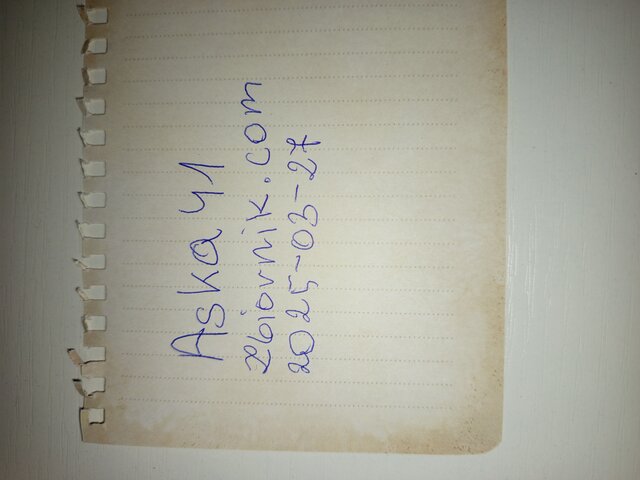 Aska41
zbiornik.com
2025-03-27